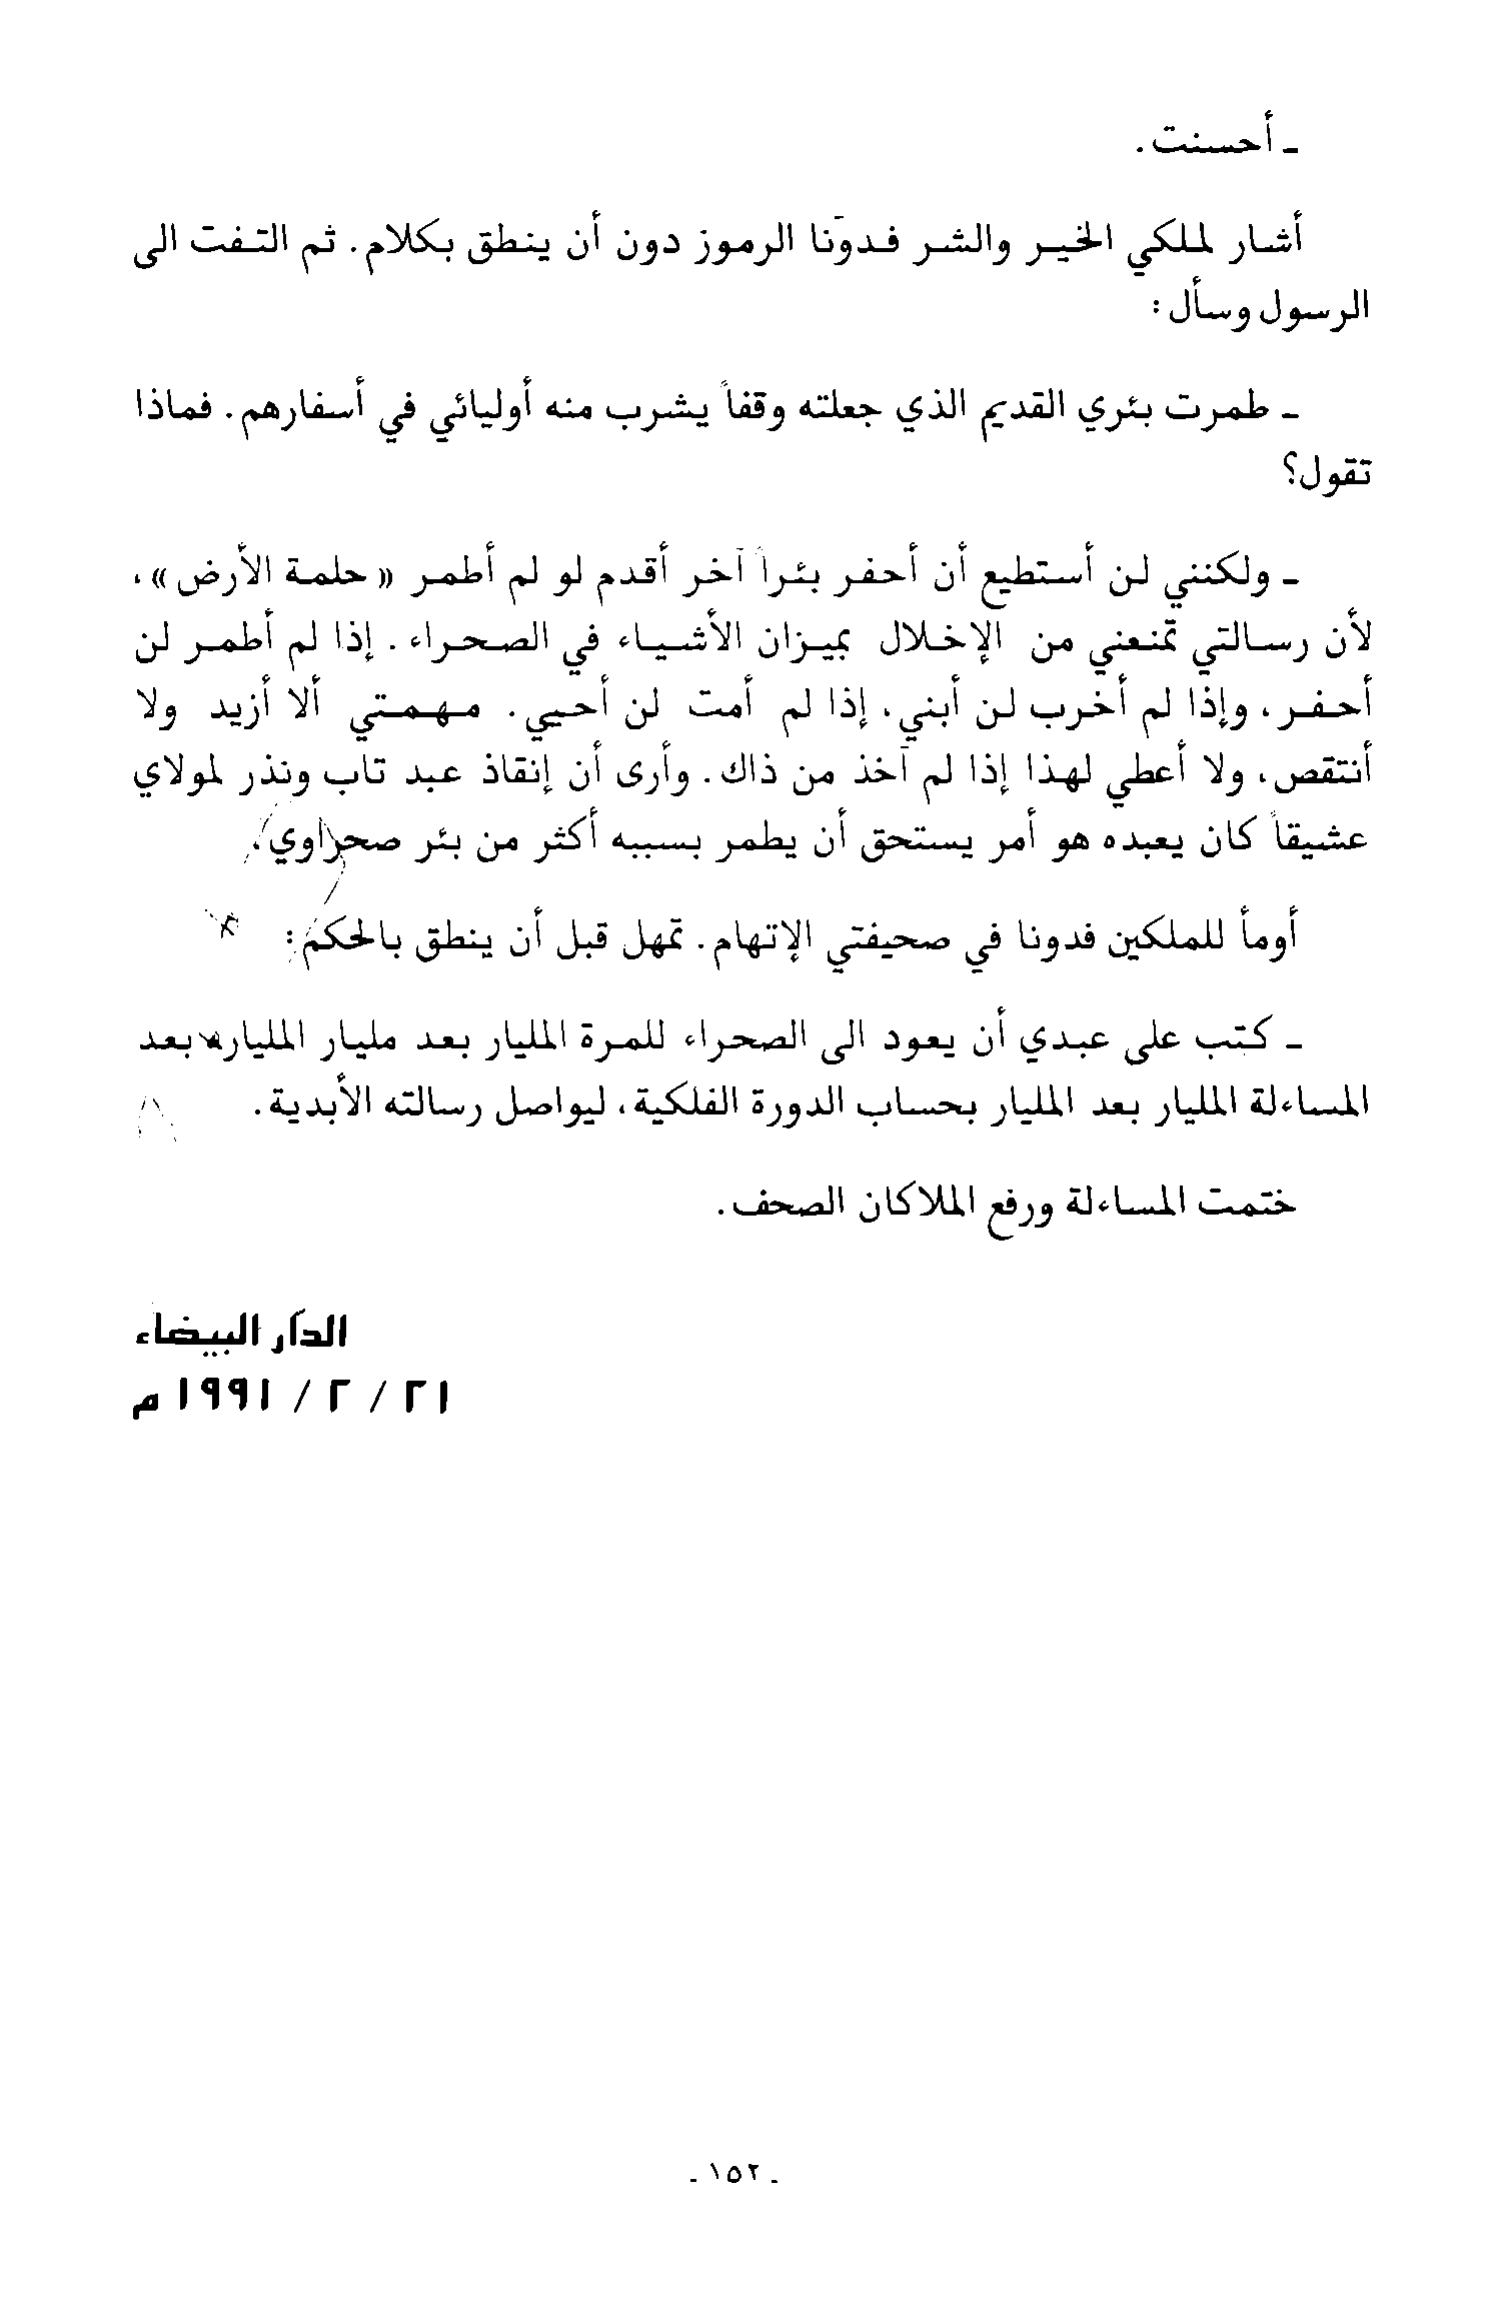 ـ أحسنت .
أشار لملكي الخير والشر فدوّنا الرموز دون أن ينطق بكلام . ثم التفت الى
الرسول وسأل :
ـ طمرت بئري القديم الذي جعلته وقفاً يشرب منه أوليائي في أسفارهم . فماذا
تقول؟
ـ ولكنني لن أستطيع أن أحفر بئراً آخر أقدم لو لم أطمر « حلمة الأرض » ،
لأن رسالتي تمنعني من الإخلال بميزان الأشياء في الصحراء . إذا لم أطمر لن
أحفر ، وإذا لم أخرب لن أبني ، إذا لم أمت لن أحيي . مهمتي ألا أزيد ولا
أنتقص ، ولا أعطي لهذا إذا لم آخذ من ذاك . وأرى أن إنقاذ عبد تاب ونذر لمولاي
عشيقاً كان يعبده هو أمر يستحق أن يطمر بسببه أكثر من بئر صحراوي .
أومأ للملكين فدونا في صحيفتي الإتهام . تمهل قبل أن ينطق بالحكم :
ـ كتب على عبدي أن يعود الى الصحراء للمرة المليار بعد مليار المليار، بعد
المساءلة المليار بعد المليار بحساب الدورة الفلكية ، ليواصل رسالته الأبدية .
ختمت المساءلة ورفع الملاكان الصحف .
الدار البيضاء
٢١ / ٢ / ١٩٩١ م
ـ ١٥٢ ـ